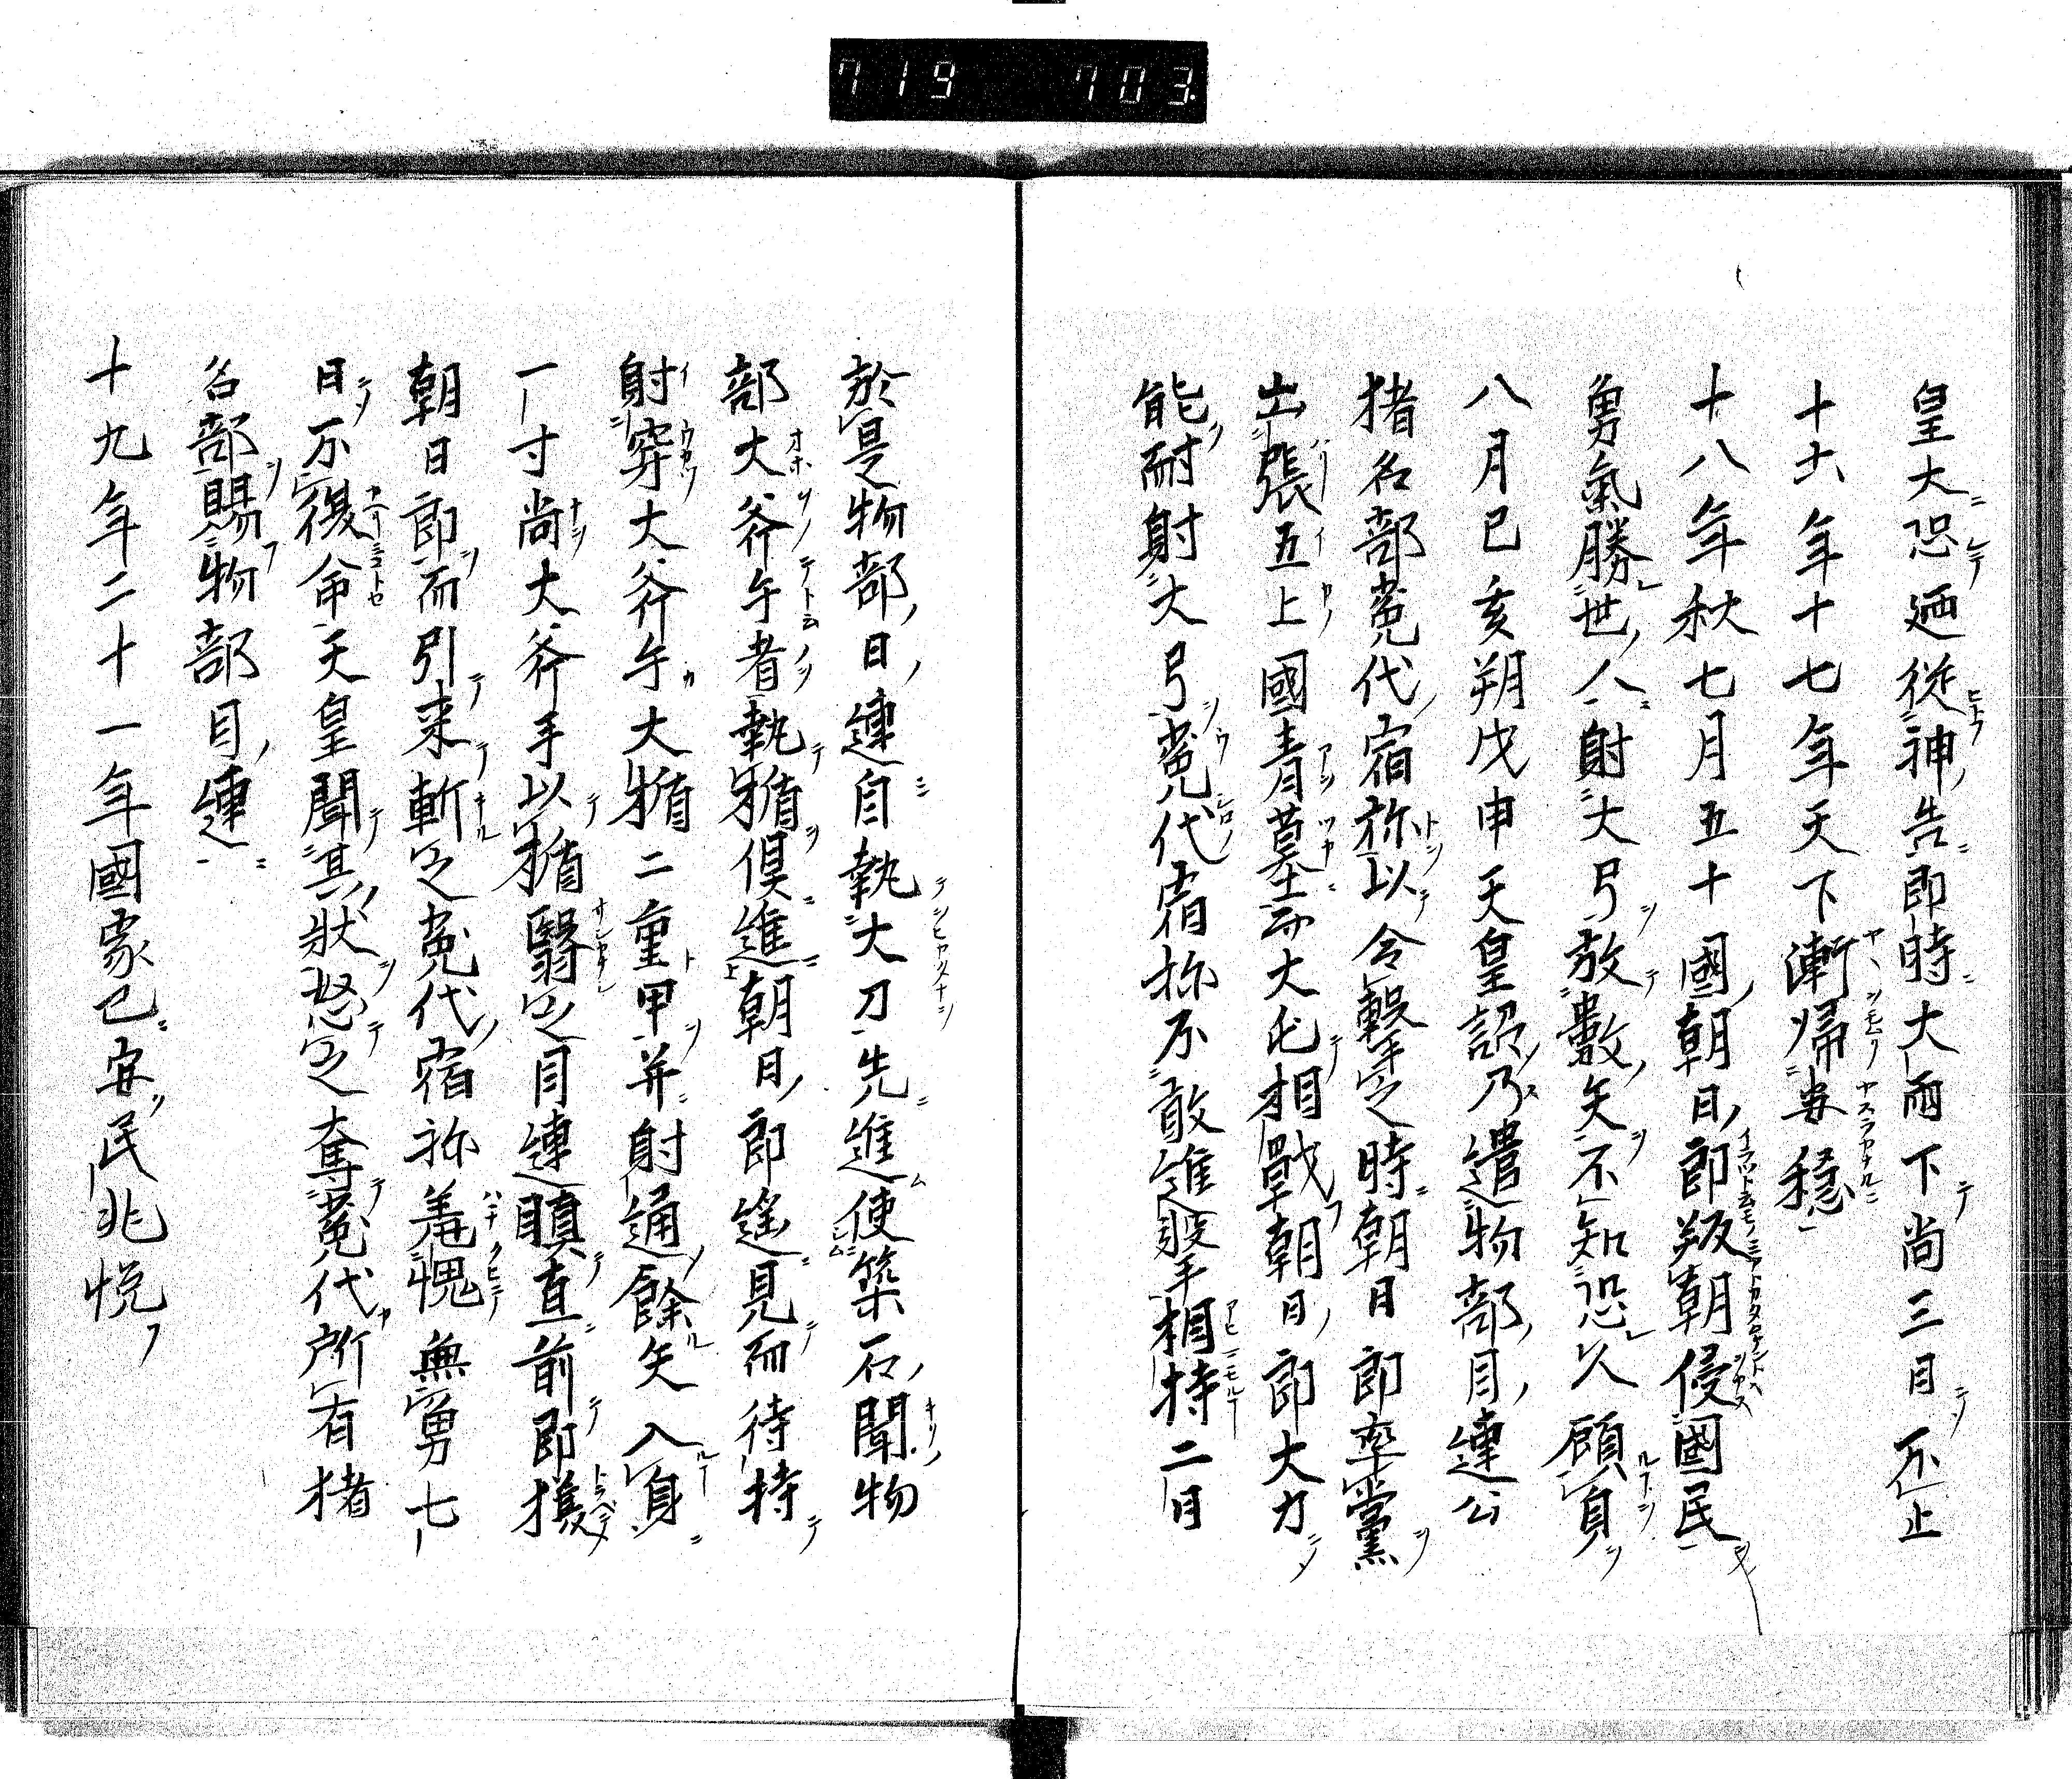 719 703.
皇大恐廼従神告即時大雨下尚三月不止
十六年十七年天下漸歸安穏
十八年秋七月五十國朝日郎叛朝侵國民
勇氣勝世人射大弓放數矢不知恐人顧負
八月己亥朔戊申天皇詔乃遣物部目連公
猪名部菟代宿祢以令撃之時朝日郎率黨
出張五上國青墓而大屯相戰朝日郎大力
能耐射大弓菟代宿祢不敢進撃相持二日
於是物部目連自執大刀先進使築石聞物
部大斧手者執楯俱進朝日郎遥見而待持
射穿大斧手大楯二重甲并射通餘矢入身
一寸尚大斧手以楯翳之目連瞋直前即獲
朝日郎而引来斬之菟代宿祢羞愧無勇七
日不復命天皇聞其状怒之奪菟代所有猪
名部賜物部目連
十九年二十一年國家已安民兆悦